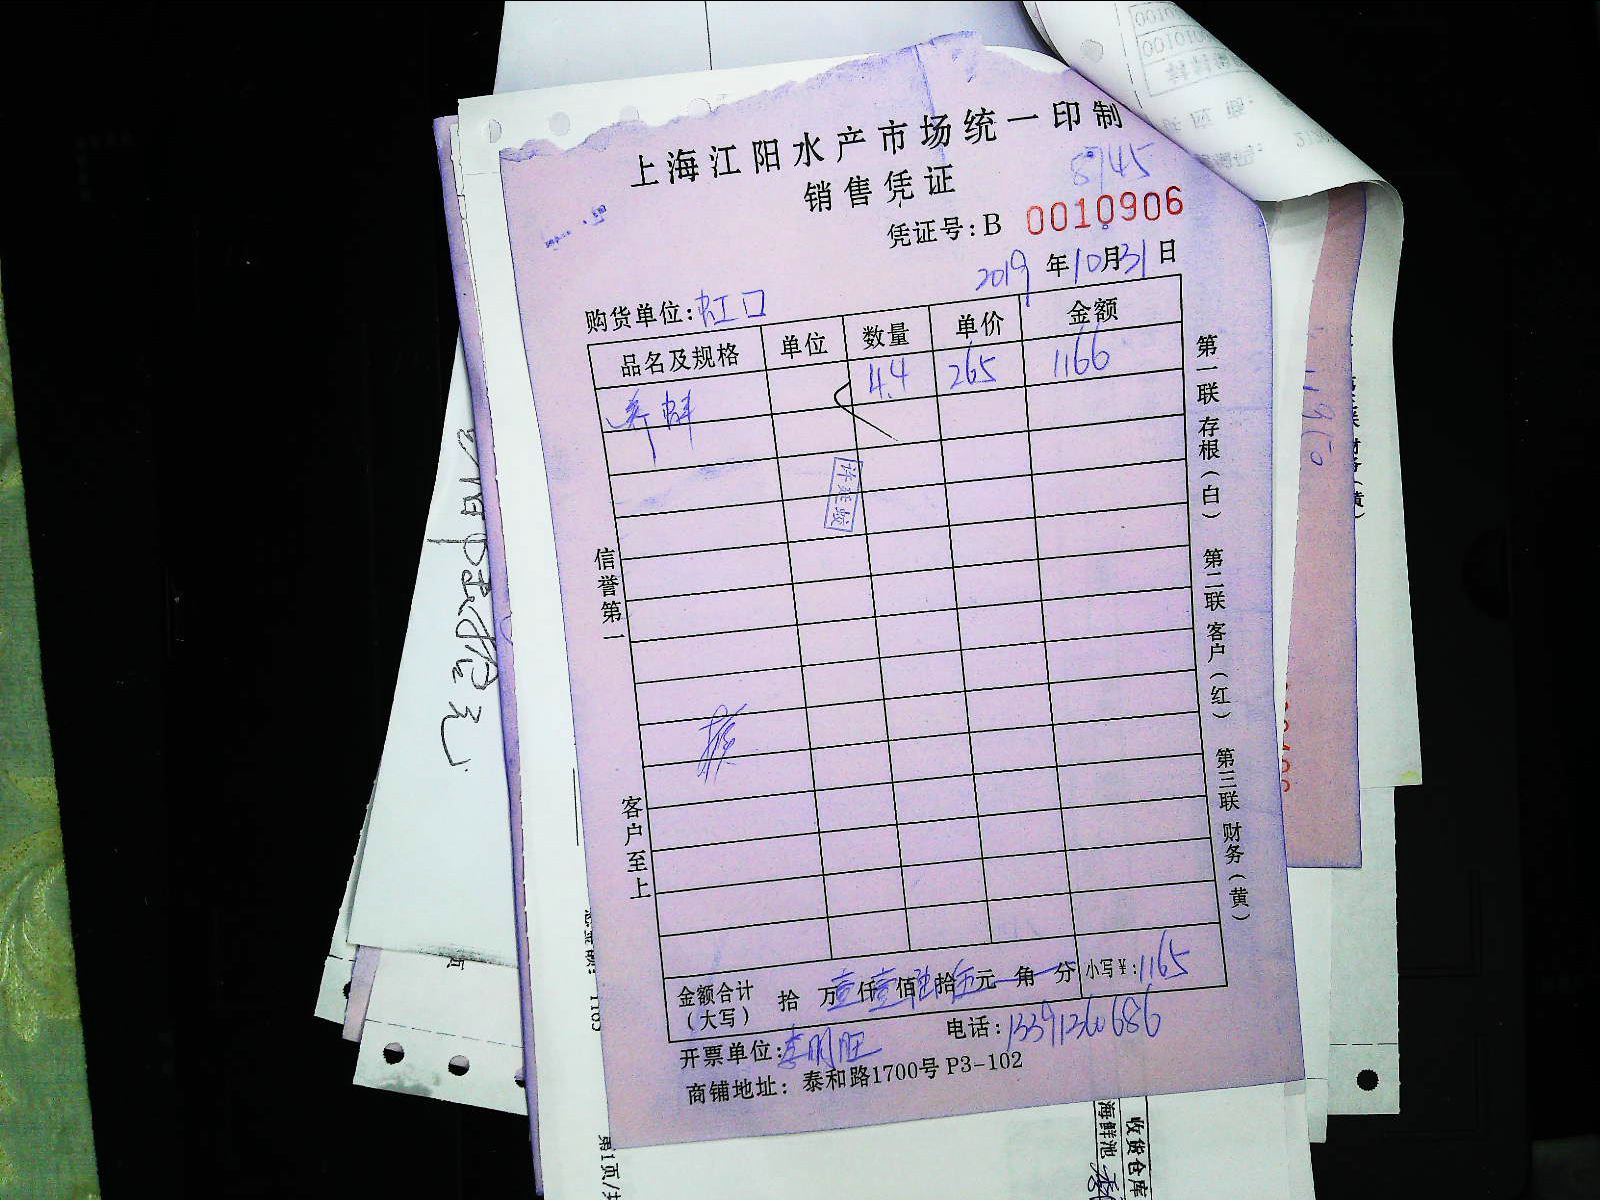 上海江阳水产市场统一印制
销售凭证
8745
凭证号:B 0010906
2019 年10月31日
购货单位:虹口
品名及规格 单位 数量 单价 金额
4.4 265 1166
许延频
信誉第一
客户至上
第一联 存根(白) 第二联 客户(红) 第三联 财务(黄)
金额合计(大写) 拾 万壹仟壹佰陆拾伍元 角 分 小写¥:1165
开票单位:李明旺 电话:13391260686
商铺地址: 泰和路1700号 P3-102
收货仓库
海鲜池